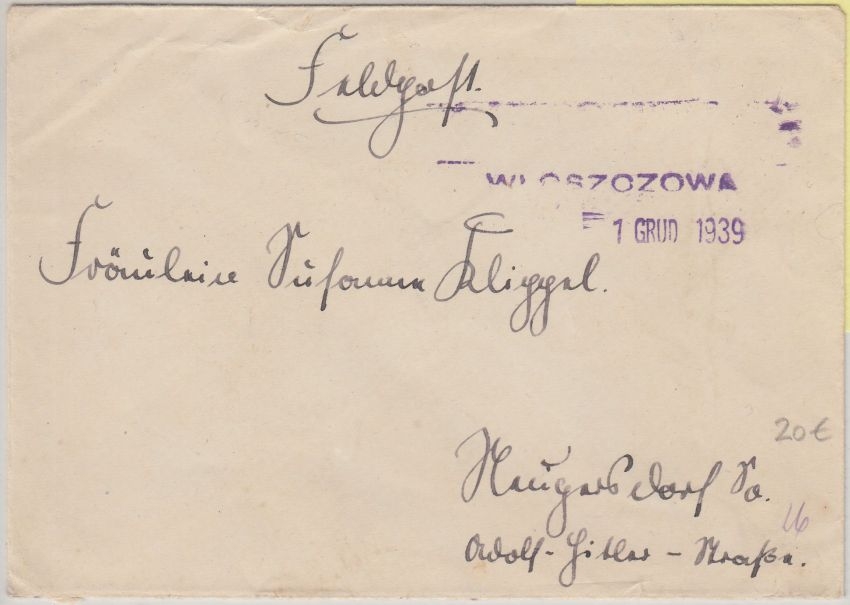 Feldpost.
WŁOSZCZOWA
1 GRUD 1939
Fräulein Susanne Klippel.
20€
Neugersdorf Sa.
16
Adolf-Hitler-Straße.